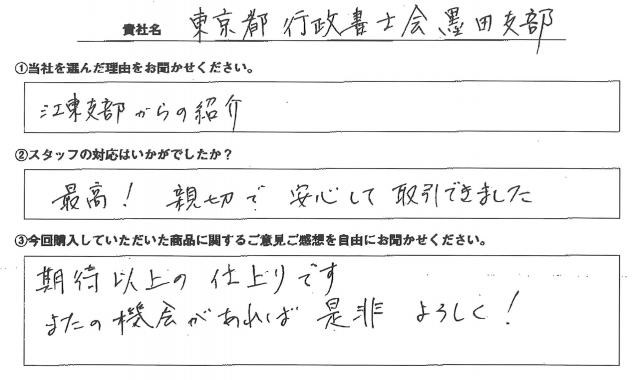 貴社名 東京都行政書士会墨田支部
①当社を選んだ理由をお聞かせください。
江東支部からの紹介
②スタッフの対応はいかがでしたか？
最高！ 親切で 安心して 取引できました
③今回購入していただいた商品に関するご意見ご感想を自由にお聞かせください。
期待以上の 仕上りです
またの機会があれば 是非 よろしく！